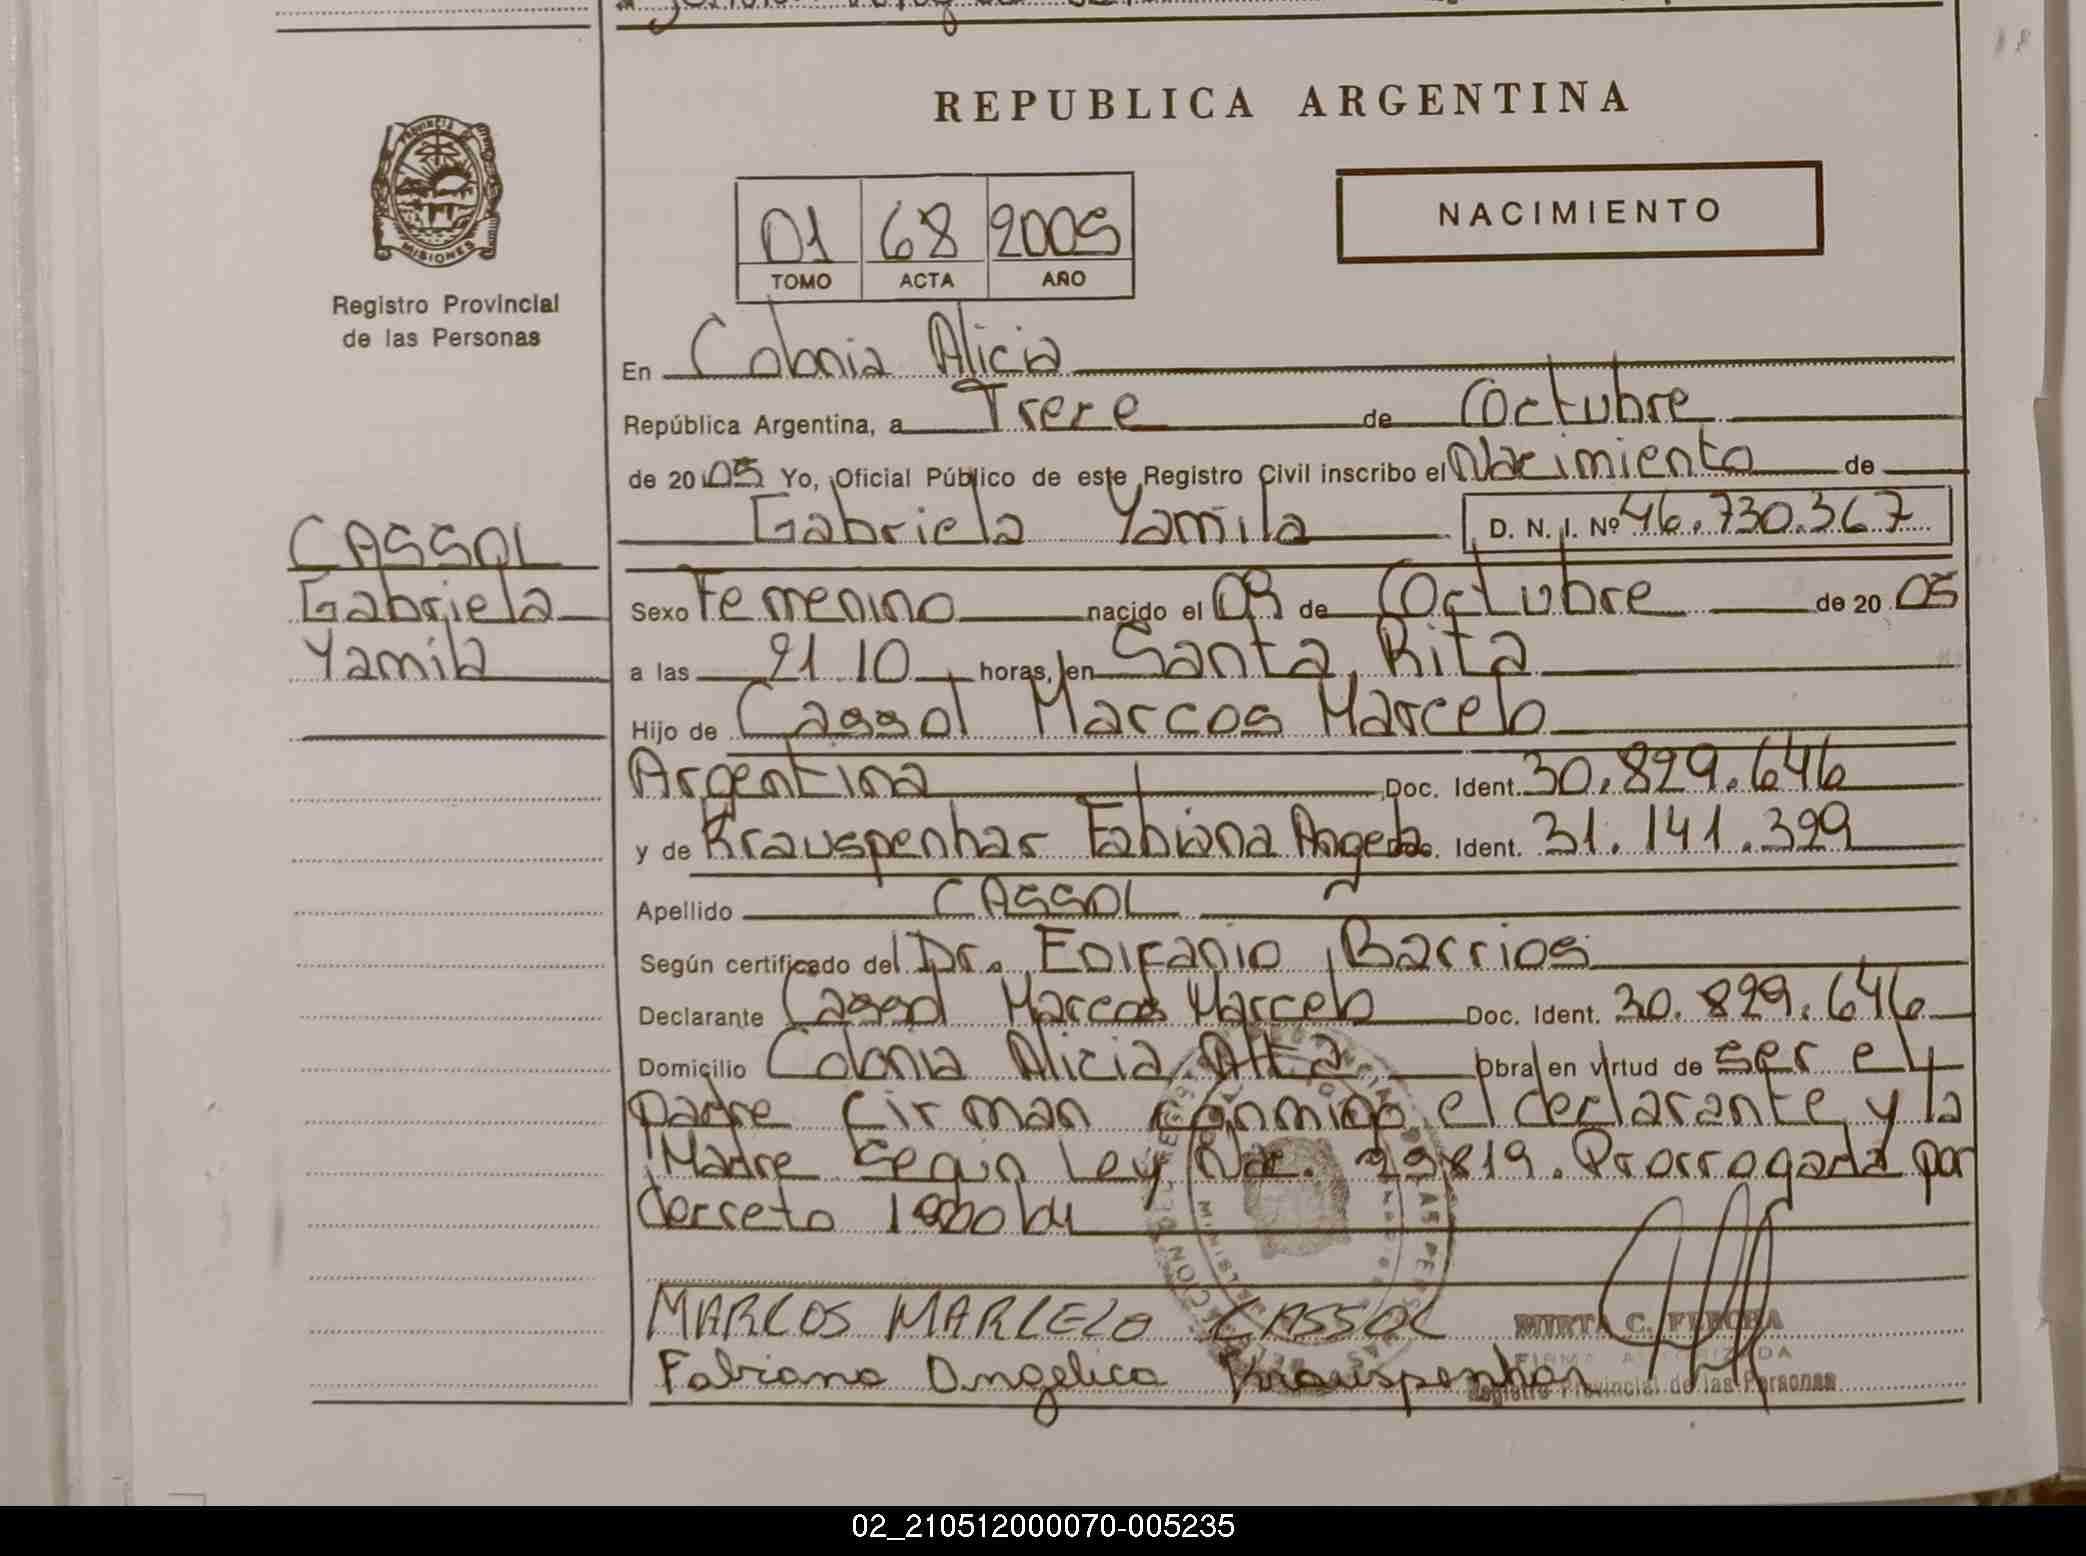 REPUBLICA ARGENTINA
PROVINCIA DE
MISIONES
Registro Provincial
de las Personas
NACIMIENTO
01 68 2005
TOMO ACTA AÑO
En Colonia Alicia
República Argentina, a Trece de Octubre
de 20 05 Yo, Oficial Público de este Registro Civil inscribo el Nacimiento de
Gabriela Yamila D. N. I. Nº 46.730.367
CASSOL
Gabriela
Yamila
Sexo Femenino nacido el 09 de Octubre de 20 05
a las 21 10 horas, en Santa Rita
Hijo de Cassol Marcos Marcelo
Argentina Doc. Ident. 30.829.646
y de Krauspenhar Fabiana Angela Doc. Ident. 31.141.399
Apellido CASSOL
Según certificado del Dr. Epifanio Barrios
Declarante Cassol Marcos Marcelo Doc. Ident. 30.829.646
Domicilio Colonia Alicia Alta Obra en virtud de ser el
padre firman conmigo el declarante y la
Madre Según Ley Nac. Prorrogada por
decreto
MARCOS MARCELO CASSOL
Fabiana Angelica Krauspenhar
MIRTA C.
FIRMA AUTORIZADA
Registro Provincial de las Personas
02_210512000070-005235